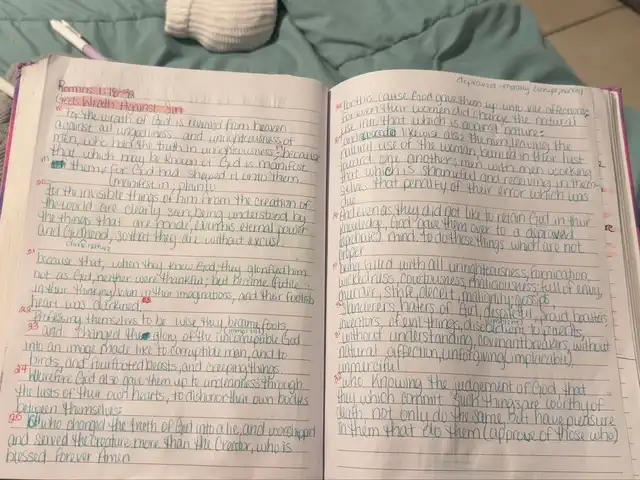 Romans 1:18-32
God's Wrath Against Sin
for the wrath of God is revealed from heaven
against all ungodliness and unrighteousness of
men, who hold the truth in unrighteousness; because
that which may be known of God is manifest
them for God had shewed it unto them
(manifest in; plain to
20 for the invisible things of him from the creation of
the world are clearly seen, being understood by
the things that are made, even his eternal power
and Godhead, so that they are without excuse
divine nature
21 because that, when they knew God, they glorified him
not as God, neither were thankful; but became futile
in their thinking/vain in their imaginations, and their foolish
heart was darkened.
22 Professing themselves to be wise they became fools,
23 and changed the glory of the uncorruptible God
into an image made like to corruptible man, and to
birds and fourfooted beasts, and creeping things
24 Wherefore God also gave them up to uncleanness through
the lusts of their own hearts, to dishonor their own bodies
between themselves:
25 who changed the truth of God into a lie, and worshipped
and served the creature more than the Creator, who is
blessed forever Amen
depraved - morally corrupt,
for this cause God gave them up unto vile affections
for even their women did change the natural
use into that which is against nature:
likewise also the men leaving the
natural use of the woman, burned in their lust
toward one another; men with men working
that which is shameful and receiving in them-
selves that penalty of their error which was
due
And even as they did not like to retain God in their
knowledge, God gave them over to a depraved
mind, to do those things which are not
proper
being filled with all unrighteousness, fornication,
wickedness, covetousness, maliciousness; full of envy,
murder, strife, deceit, malignity; gossips
slanderers haters of God, despiteful, proud boasters,
inventors of evil things, disobedient to parents,
without understanding, covenantbreakers, without
natural affection, unforgiving (implacable)
unmerciful
who knowing the judgement of God that
they which commit such things are worthy of
death, not only do the same, but have pleasure
in them that do them (approve of those who)